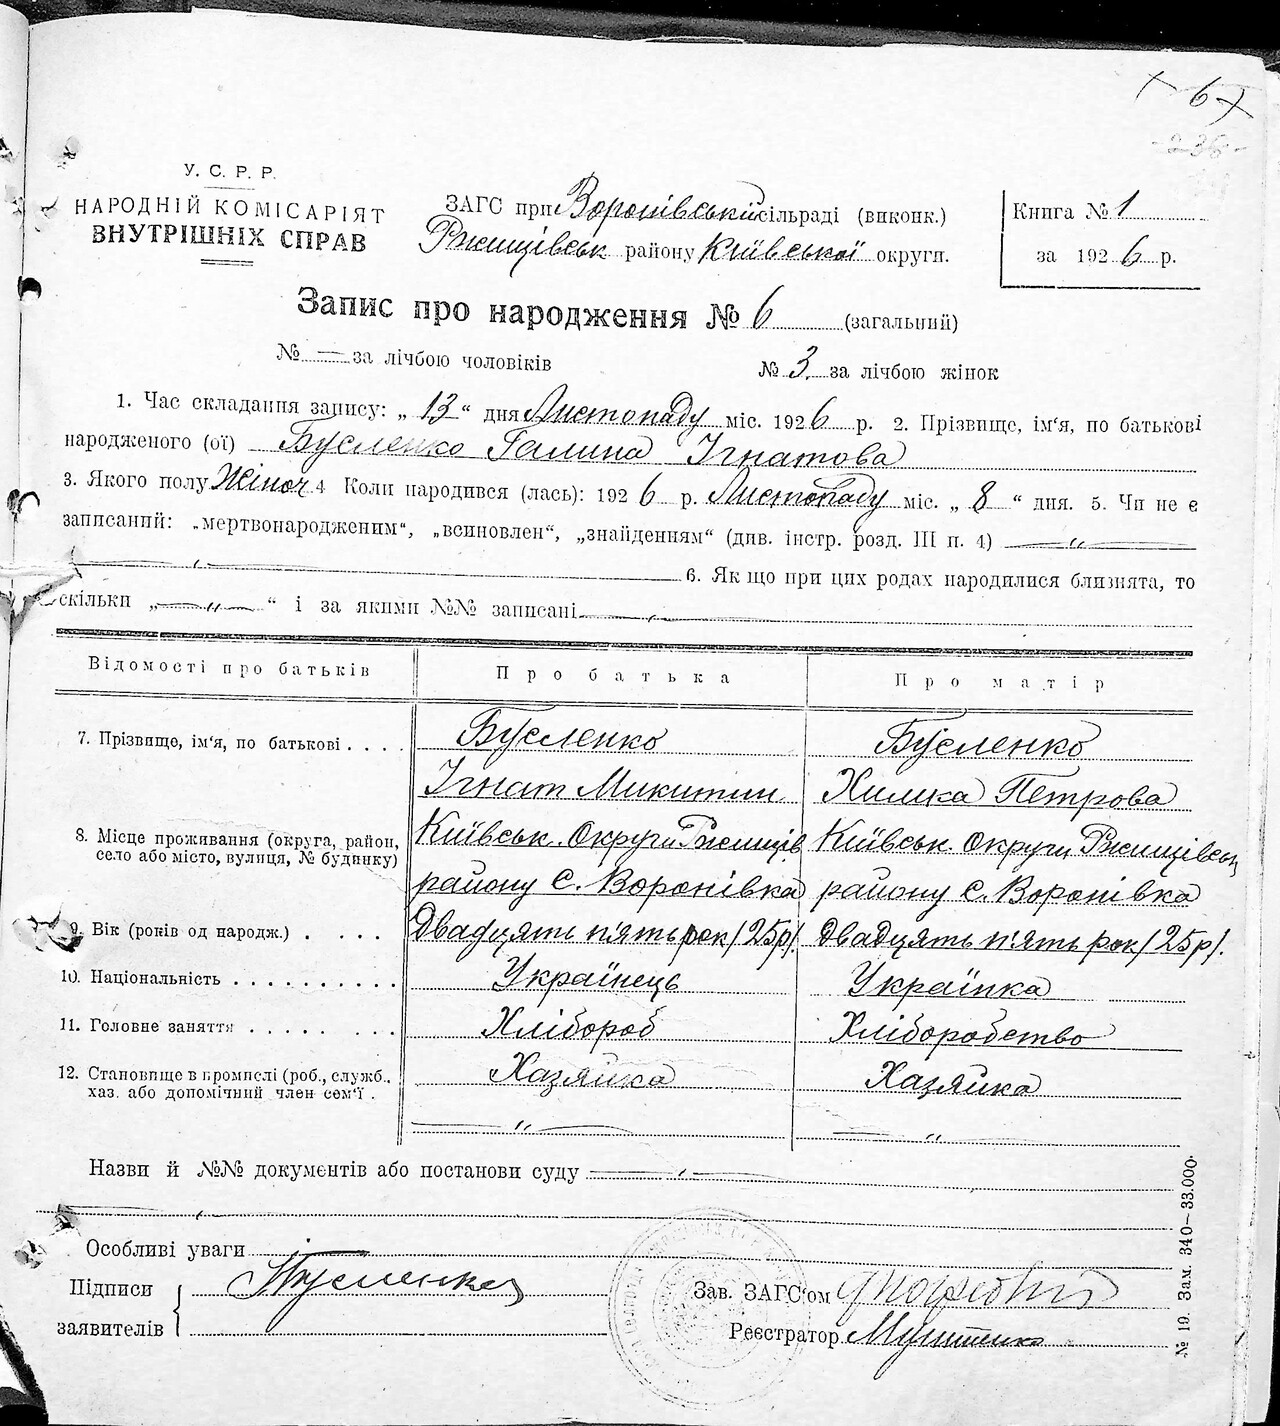 67
-236-
У. С. Р. Р.
НАРОДНІЙ КОМІСАРІЯТ
ВНУТРІШНІХ СПРАВ
ЗАГС при Воронівський сільраді (виконк.)
Ржищівськ району Київської округи.
Книга № 1
за 1926 р.
Запис про народження № 6 (загальний)
№ — за лічбою чоловіків № 3 за лічбою жінок
1. Час складання запису: „ 13 “ дня Листопаду міс. 1926 р. 2. Прізвище, ім‘я, по батькові
народженого (ої) Бусленко Галина Ігнатова
3. Якого полу Жіноч 4 Коли народився (лась): 1926 р. Листопаду міс. „ 8 “ дня. 5. Чи не є
записаний: „мертвонародженим“, „всиновлен“, „знайденням“ (див. інстр. розд. III п. 4) — „ —
— „ — 6. Як що при цих родах народилися близнята, то
скільки „ — „ — “ і за якими №№ записані — „ —
Відомості про батьків Про батька Про матір
7. Прізвище, ім‘я, по батькові . . . . Бусленко Бусленко
Ігнат Микитин Химка Петрова
8. Місце проживання (округа, район, село або місто, вулиця, № будинку) Київськ. Округи Ржищів Київськ Округи Ржищівськ
району с. Воронівка району с. Воронівка
9. Вік (років од народж.) . . . . Двадцять п'ять рок /25р/. Двадцять п'ять рок /25р/.
10. Національність . . . . . . . . . . Українець Українка
11. Головне заняття . . . . . . . . Хлібороб Хліборобство
12. Становище в промислі (роб., служб., хаз. або допомічний член сем‘ї . Хазяйка Хазяйка
— „ — — „ —
Назви й №№ документів або постанови суду — „ —
— „ —
Особливі уваги
Підписи Бусленко Зав. ЗАГС‘ом
заявителів Реєстратор
№ 19. Зам. 340—33.000.